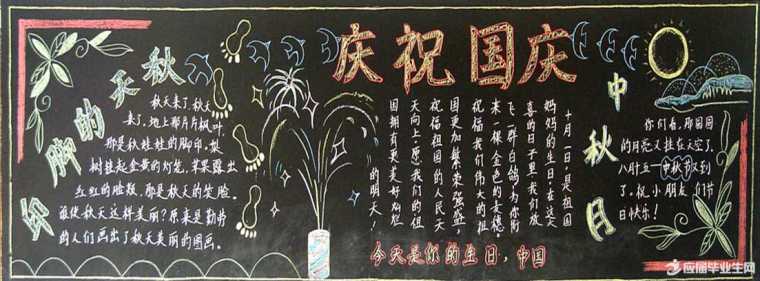 秋天的脚印
秋天来了,秋天
来了,地上那片片枫叶,
那是秋娃娃的脚印,梨
树挂起金黄的灯笼,苹果露出
红红的脸颊,那是秋天的笑脸。
谁使秋天这样美丽?原来是勤劳
的人们画出了秋天美丽的图画。
庆祝国庆
十月一日是祖国
妈妈的生日,在这天
喜的日子里,我们放
飞一群白鸽,为你衔
来一棵金色的麦穗,
祝福我们伟大的祖
国更加繁荣强盛,
祝福祖国的人民天
天向上,愿我们的祖
国拥有更美好灿烂
的明天!
今天是你的生日,中国
中秋月
你们看,那圆圆
的月亮又挂在天空了,
八月十五——中秋节又到
了,祝小朋友们节
日快乐!
应届毕业生网